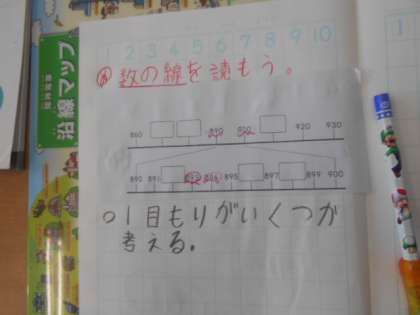 沿線マップ
1 2 3 4 5 6 7 8 9 10
め 数の線を読もう。
860 920 930
890 891 895 897 899 900
○1目もりがいくつか
考える。
1